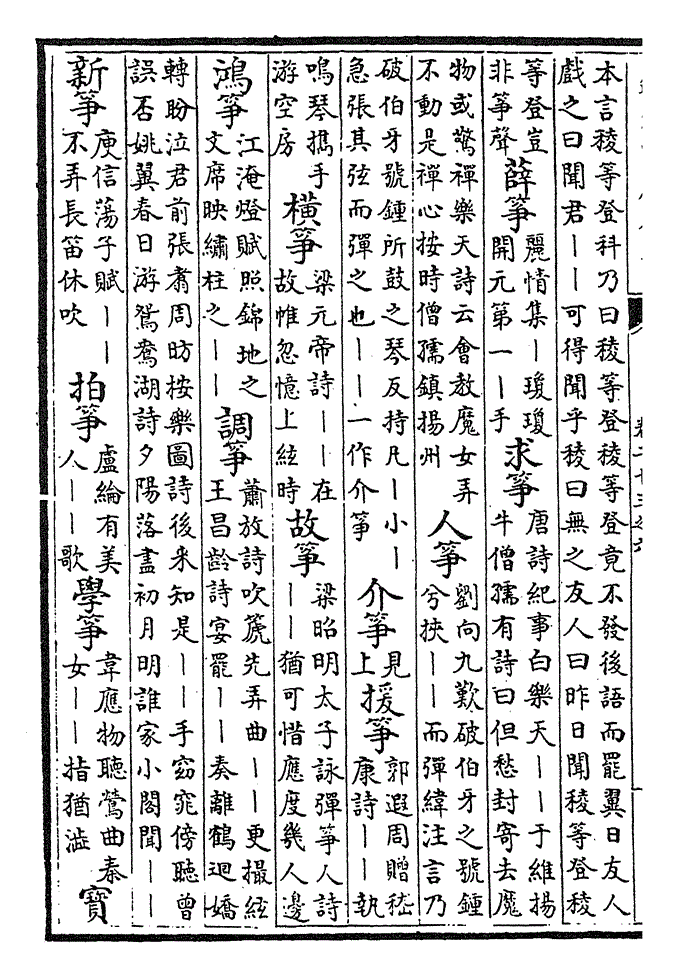 本言稜等登科乃曰稜等登稜等登竟不發後語而罷翼日友人
戲之曰聞君丨丨可得聞乎稜曰無之友人曰昨日聞稜等登稜
等登豈
非箏聲
薛箏
麗情集丨瓊瓊
開元第一丨手
求箏
唐詩紀事白樂天丨丨于維揚
牛僧孺有詩曰但愁封寄去魔
物或驚禪樂天詩云會教魔女弄
不動是禪心按時僧孺鎮揚州
人箏
劉向九歎破伯牙之號鍾
兮挾丨丨而彈緯注言乃
破伯牙號鍾所鼓之琴反持凡丨小丨
急張其弦而彈之也丨丨一作介箏
介箏
見
上
援箏
郭遐周贈嵇
康詩丨丨執
鳴琴攜手
游空房
橫箏
梁元帝詩丨丨在
故帷忽憶上絃時
故箏
梁昭明太子詠彈箏人詩
丨丨猶可惜應度幾人邊
鴻箏
江淹燈賦照錦地之
文席映繡柱之丨丨
調箏
蕭放詩吹篪先弄曲丨丨更撮絃
王昌齡詩宴罷丨丨奏離鶴迴嬌
轉盼泣君前張翥周昉按樂圖詩後来知是丨丨手窈窕傍聽曾
誤否姚翼春日游鴛鴦湖詩夕陽落盡初月明誰家小閣聞丨丨
新箏
庾信蕩子賦丨丨
不弄長笛休吹
拍箏
盧綸有美
人丨丨歌
學箏
韋應物聽鶯曲秦
女丨丨指猶澁
寶